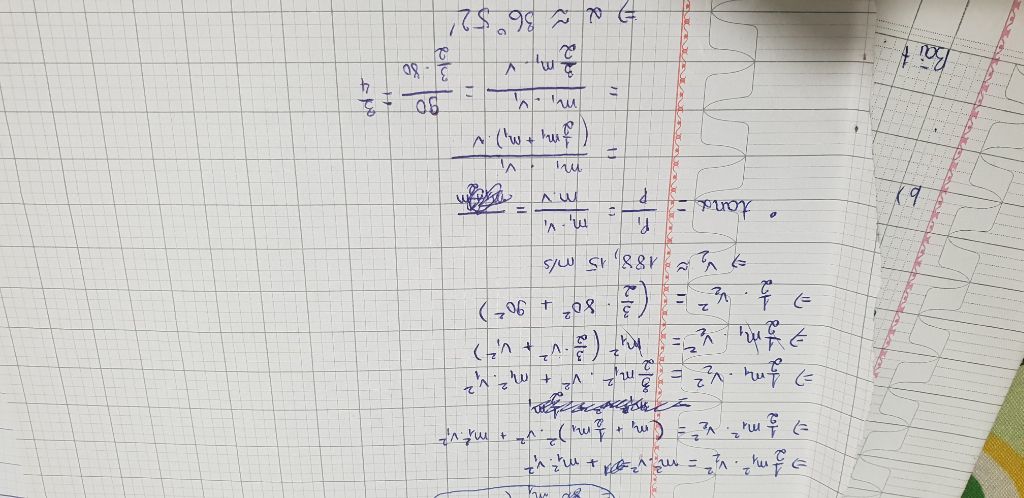 ⇒ 1/2 m₁² · v₂² = m² · v² + m₁² · v₁²
⇒ 1/2 m₁² · v₂² = (m₁ + 1/2 m₁)² · v² + m₁² · v₁²
⇒ 1/2 m₁ · v₂² = 3/2 m₁² · v² + m₁² · v₁²
⇒ 1/2 m₁ · v₂² = m₁² (3/2 · v² + v₁²)
⇒ 1/2 · v₂² = (3/2 · 80² + 90²)
⇒ v₂ ≈ 188,15 m/s
b)
• tanα = P₁/P = m₁ · v₁/m · v =
= m₁ · v₁/(1/2 m₁ + m₁) · v
Bài t
= m₁ · v₁/3/2 m₁ · v = 90/3/2 · 80 = 3/4
⇒ α ≈ 36° 52'